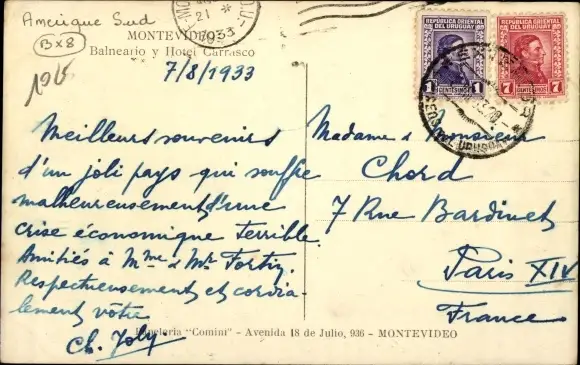 Amérique Sud
B x 8
MONTEVIDEO
Balneario y Hotel Carrasco
7/8/1933
Meilleurs souvenirs
d'un joli pays qui souffre
malheureusement d'une
crise économique terrible.
Amitiés à Mme & Mr Fortin.
Respectueusement et cordia-
lement vôtre
Ch. Joly
Madame & Monsieur
Chord
7 Rue Bardinet
Paris XIV
France
REPÚBLICA ORIENTAL
DEL URUGUAY
1 CENTESIMO 1
REPÚBLICA ORIENTAL
DEL URUGUAY
7 CENTESIMOS 7
21
1933
Papeleria "Comini" - Avenida 18 de Julio, 936 - MONTEVIDEO